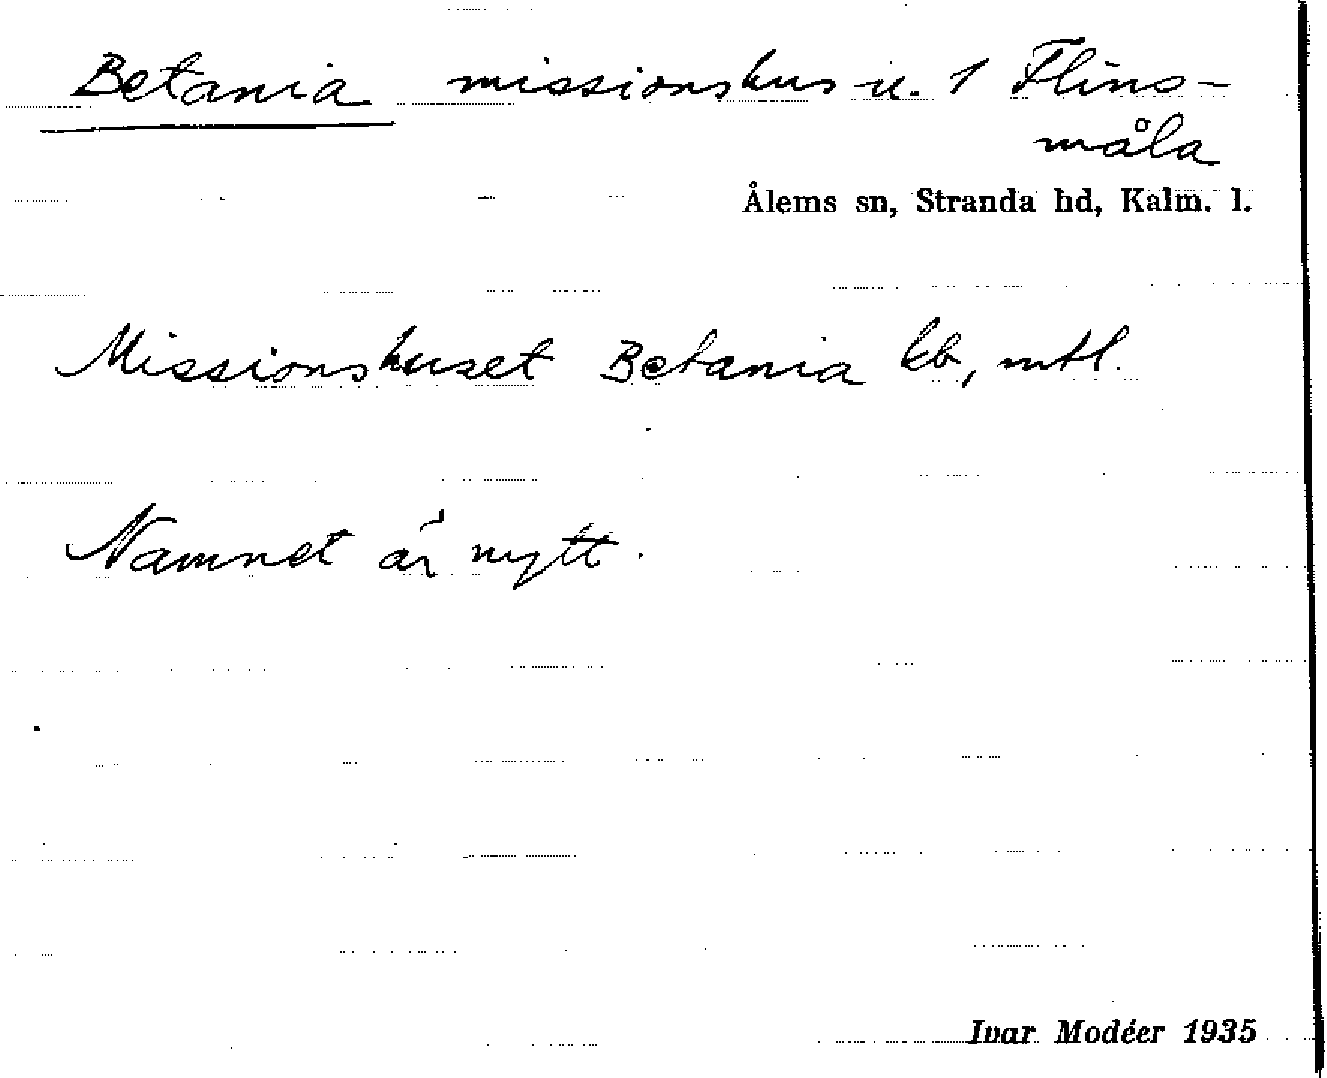 Betania missionshus u. 1 Flins-
måla
Ålems sn, Stranda hd, Kalm. l.
Missionshuset Betania kb, mtl.
Namnet är nytt.
Ivar Modéer 1935